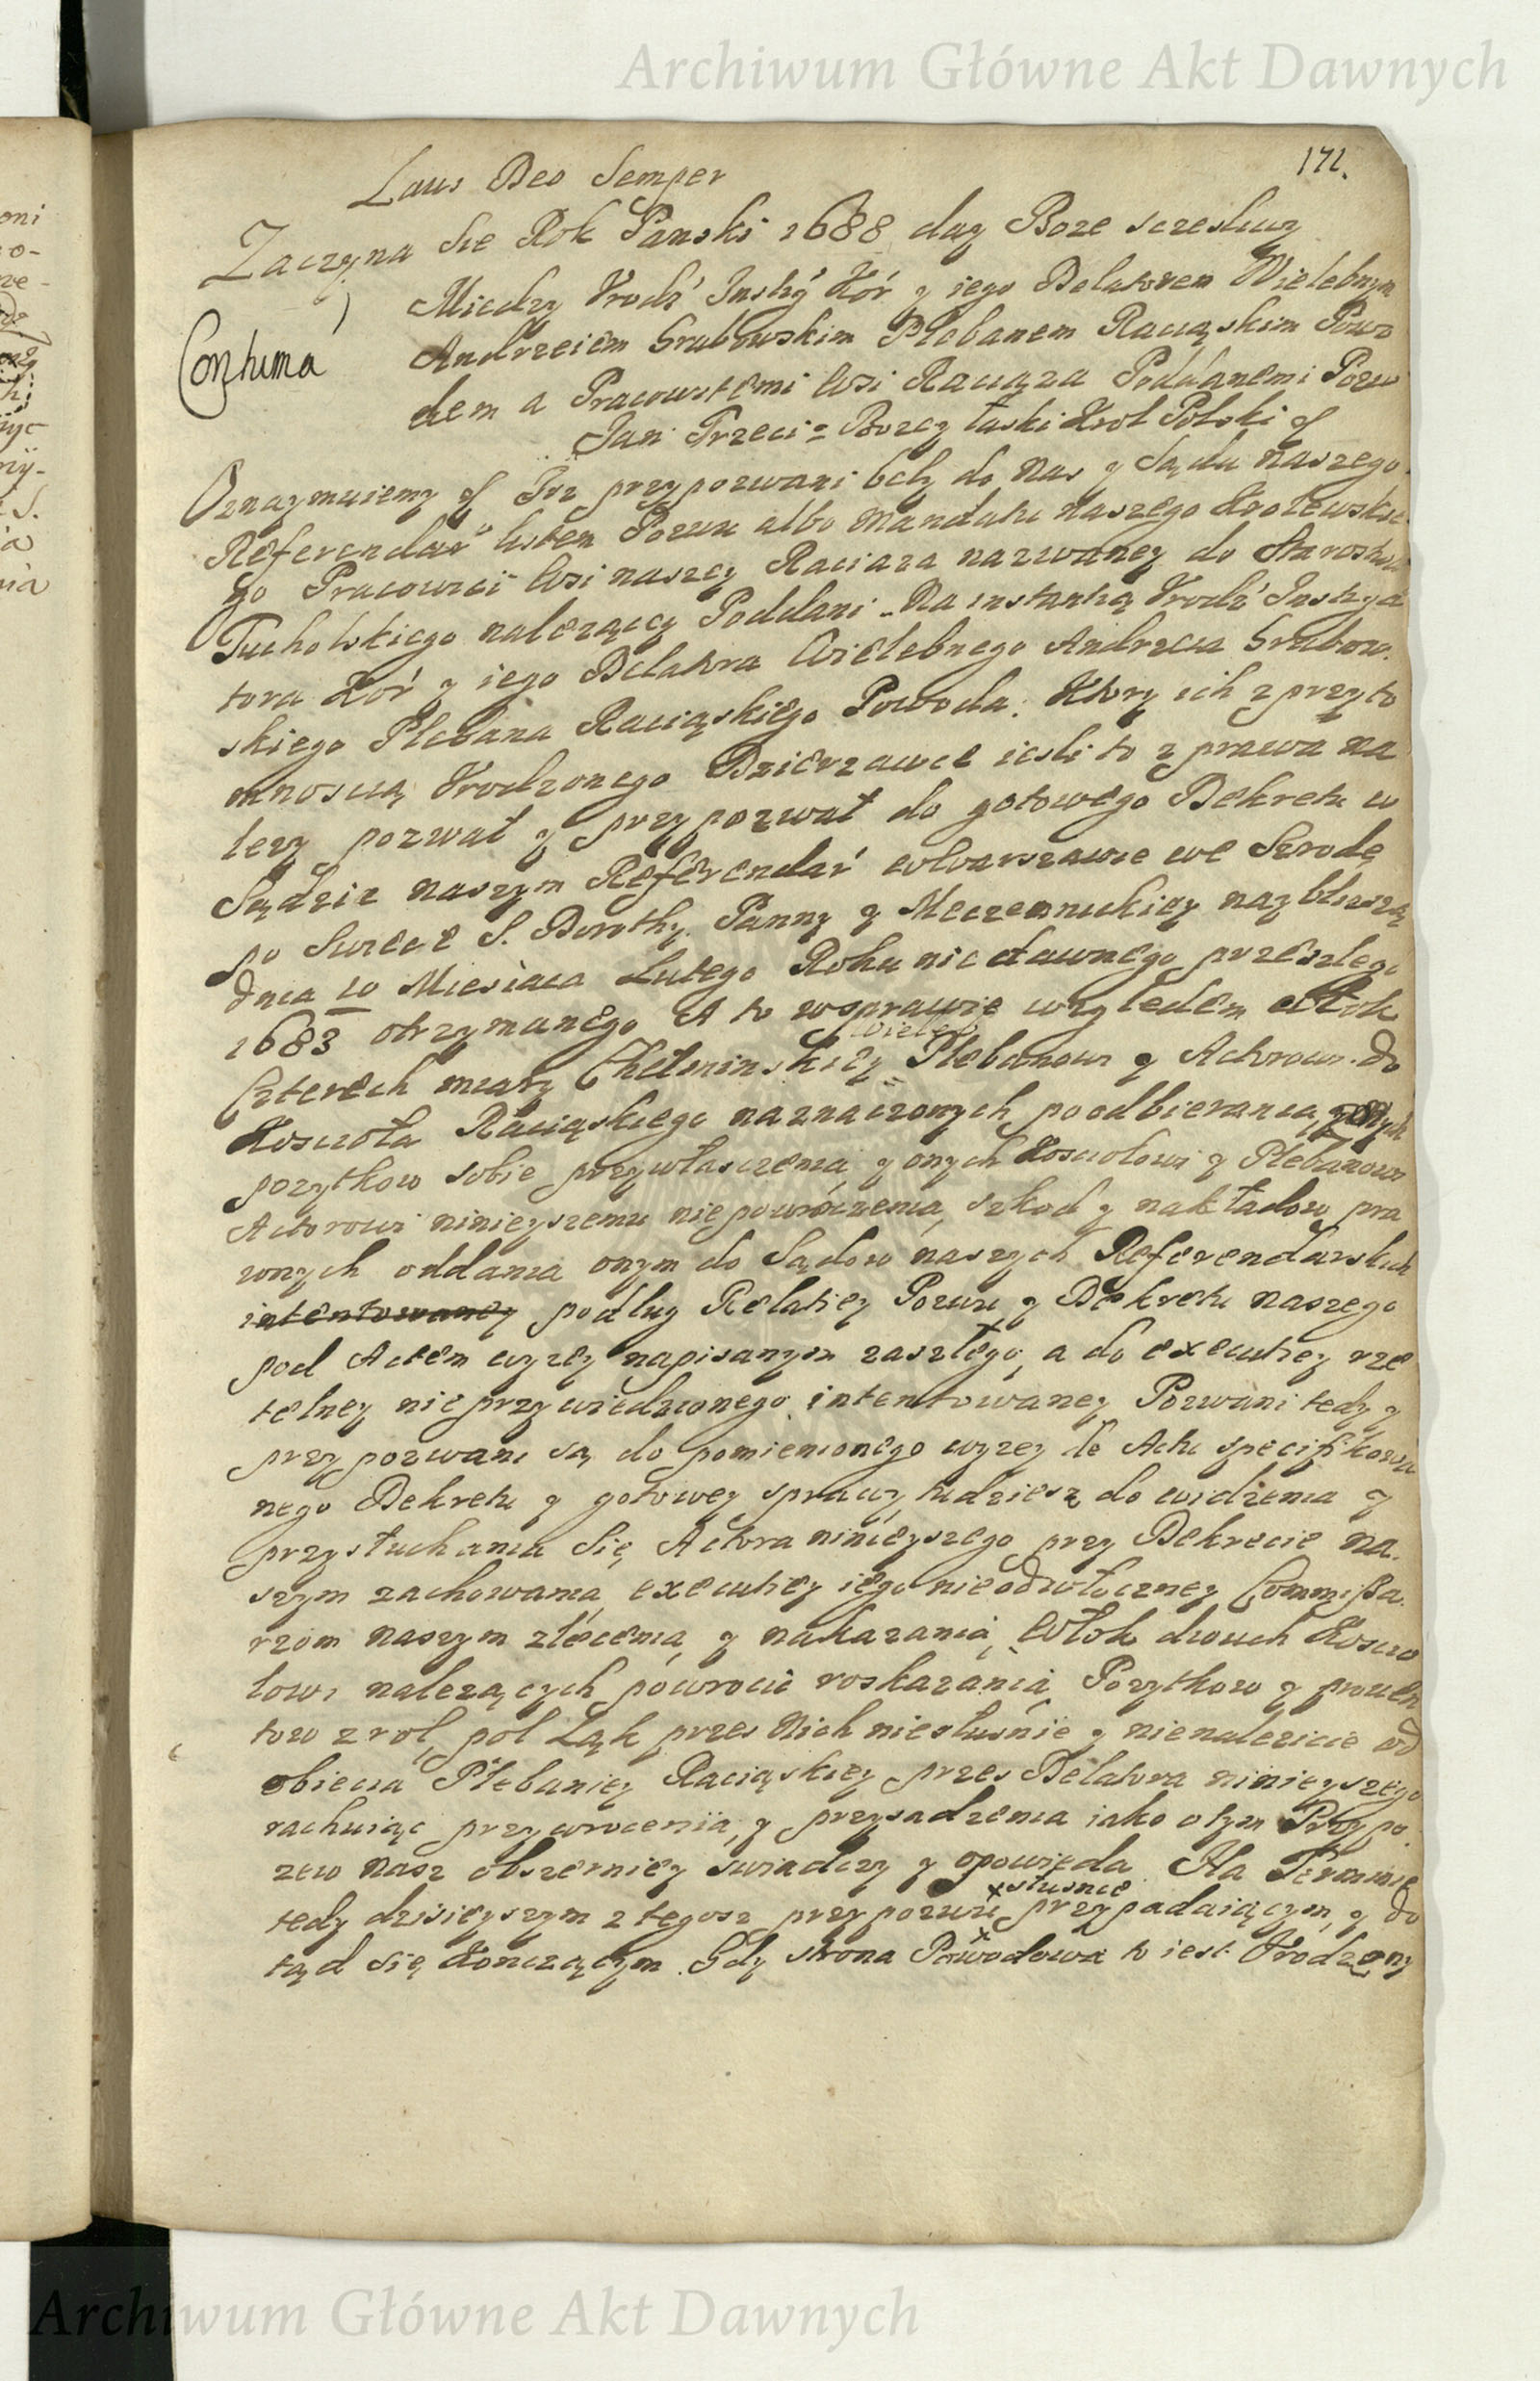 Archiwum Główne Akt Dawnych
171.
Laus Deo Semper
Zaczyna Sie Rok Panski 1688 day Boze sczesliwy
Contuma
Miedzy Vrodz' Instig' Kor' y iego Delatorem Wielebnym
Andrzeiem Grabowskim Plebanem Raciąskim Powo
dem a Pracowitemi Wsi Raciąza Poddanemi Pozw
Jan Trzeci z Bozey łaski Krol Polski &
Oznaymuiemy & Isz przypozwani bely do Nas y Sądu naszego
Referendar' listem Pozwu albo Mandatu naszego Krolewskie
go Pracowici Wsi naszey Raciaza nazwaney do Starostwa
Tucholskiego nalezący Poddani. Na instantią Vrodz' Instiga
tora Kor' y iego Delatora Wielebnego Andrzeia Grabow
skiego Plebana Raciąskiego Powoda. Ktory ich z przyto
mnoscią Vrodzonego Dzierzawce iesli to z prawa na
lezy pozwał y przypozwał do gotowego Dekretu w
Sądzie naszym Referendar' w Warszawie we Szrodę
po Swiecie S. Dorothy Panny y Meczennickiey nayblizszą
dnia 10 Miesiaca Lutego Roku niedawnego przeszlego
1683 otrzymanego A to w sprawie względem Włok
Czterech miary Chełminskiey Wieleb Plebanowi y Actorowi do
Kosciola Raciąskiego naznaczonych, poodbierania, z onych
pozytkow sobie przywłasczenia, y onych Kosciolowi y Plebanowi
Actorowi ninieyszemu niepowrócenia, szkod y nakładow pra
wnych oddania onym do Sądow naszych Referendarskich
intentowaney podlug Relatiey Pozwu y Dekretu naszego
pod Actem wyzey napisanym zaszłego, a do executiey rze
telney nieprzywiedzionego intentowaney Pozwani tedy y
przypozwani są do pomienionego wyzey de Actu specifikowa
nego Dekretu y gotowey sprawy, tudziesz do widzenia y
przysłuchania Się Actora ninieyszego przy Dekrecie na
szym zachowania, executiey iego nieodwłoczney Commissa
rzom naszym zlecenia, y nakazania, Włok dwuch Koscio
łowi nalezących powrocic roskazania Pozytkow y prowen
tow zról, pol Ląk przes Nich niesłusnie y nienalezicie od
obiecia Plebaniey Raciąskiey przes Delatora ninieyszego
rachuiąc przywrocenia, y przysadzenia iako o tym Przypo
zew Nasz obszerniey swiadczy y opowieda Na Terminie
tedy dzisieyszym z tegosz przypozwu słusnie przypadaiącym, y do
tąd się konczączym. Gdy strona Powodowa to iest Vrodzony
Archiwum Główne Akt Dawnych